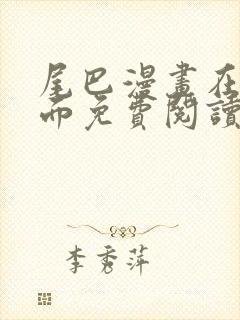 尾巴漫畫在
而免費閱讀
李秀萍